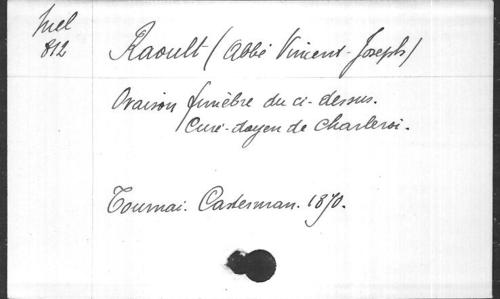 Mel
812
Raoult (Abbé Vincent-Joseph)
Oraison funèbre du ci-dessus.
Curé-doyen de Charleroi.
Tournai. Casterman. 1870.